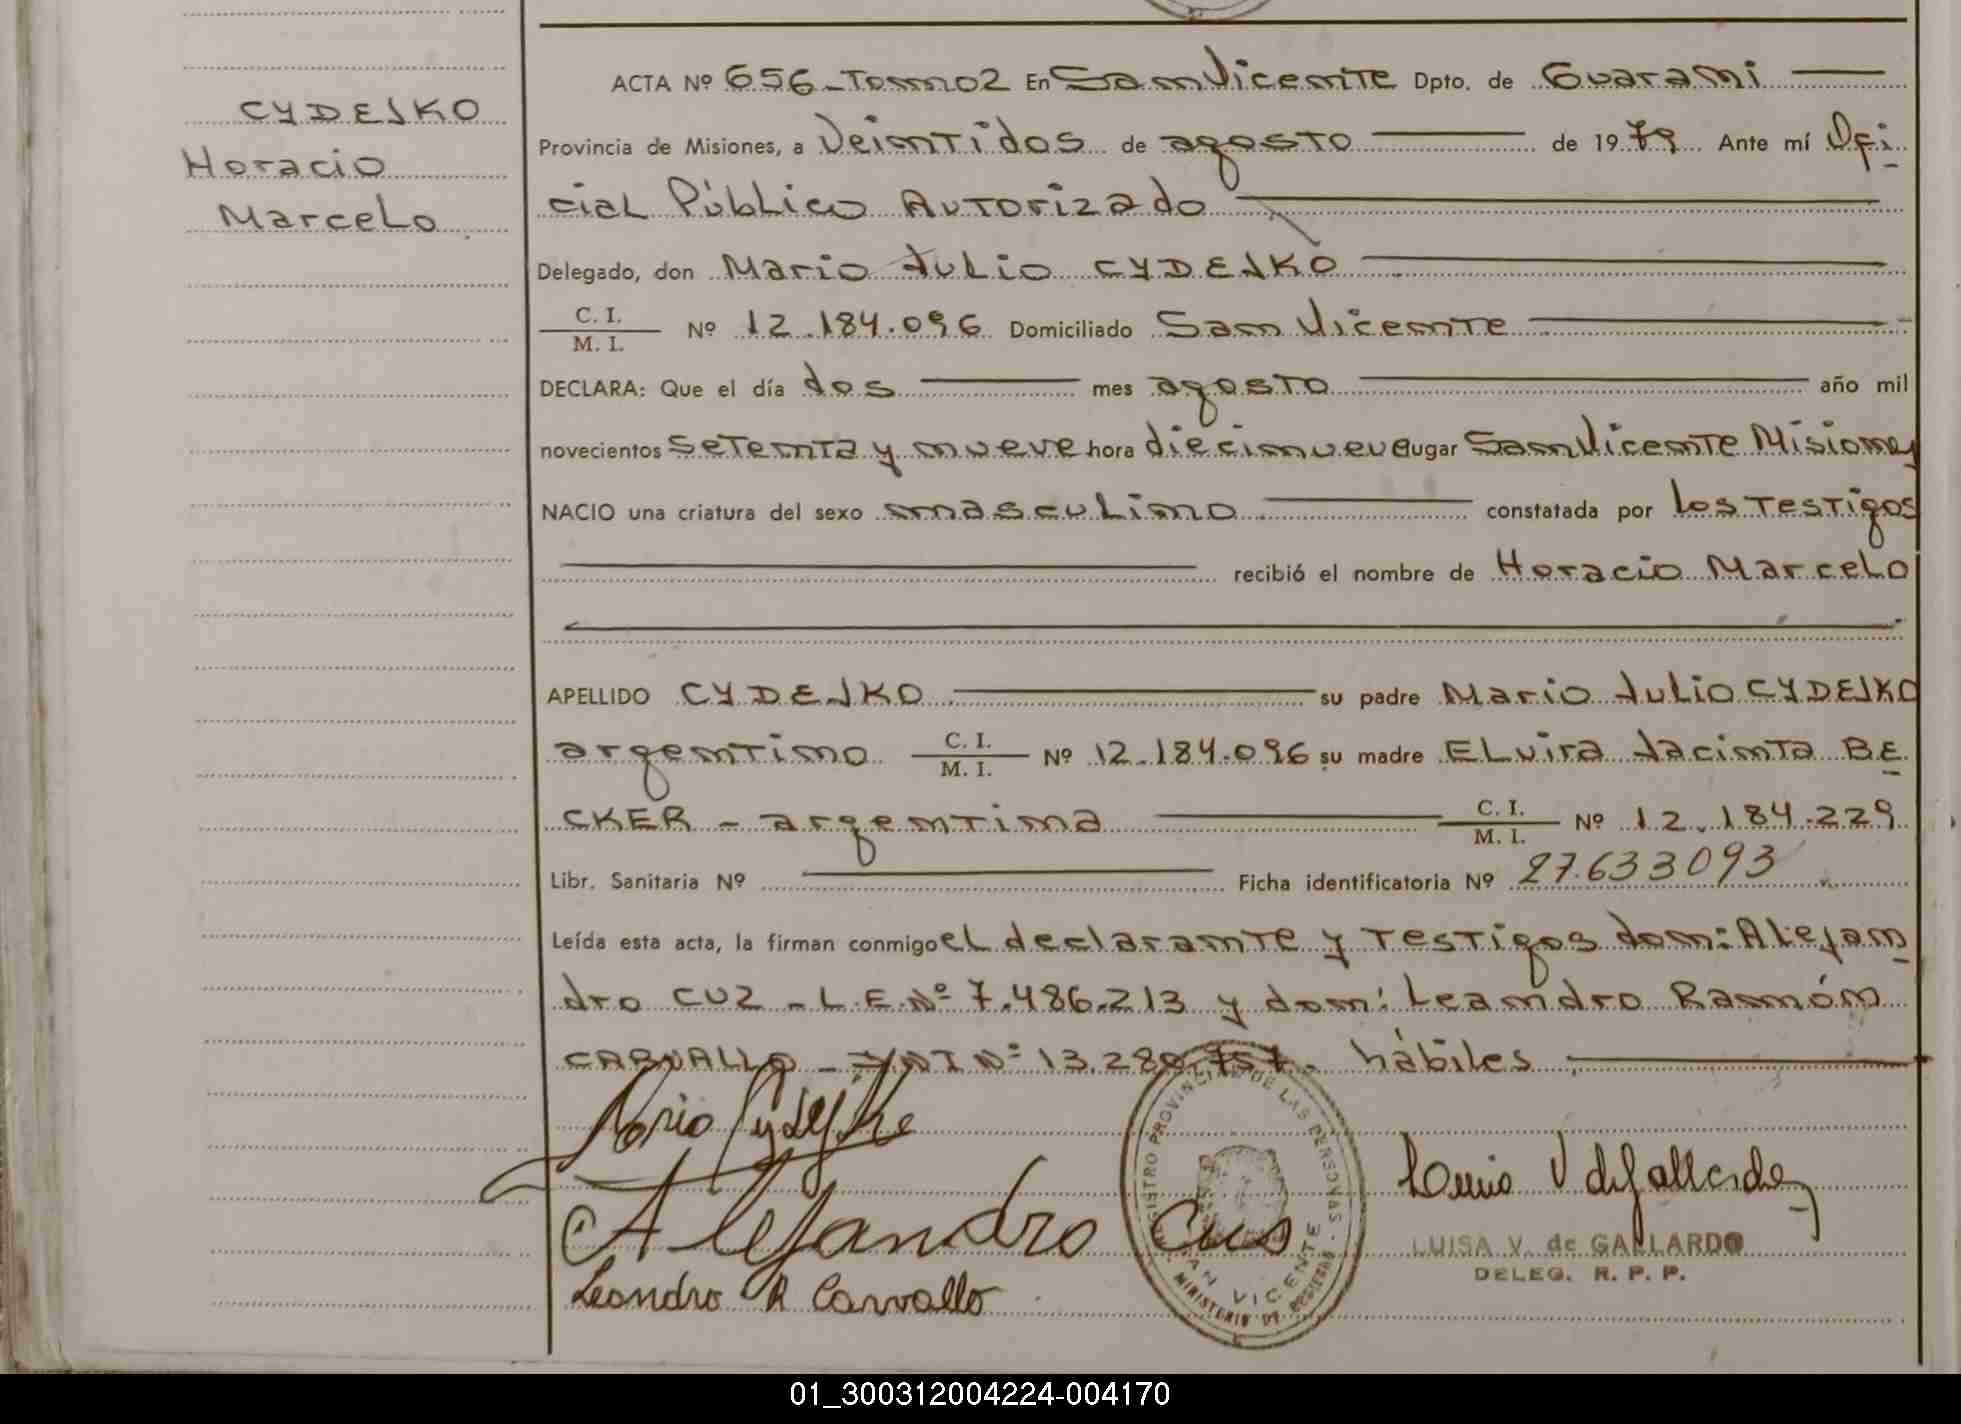 CYDEJKO
Horacio
Marcelo
ACTA Nº 656-Tomo 2 En San Vicente Dpto. de Guarani
Provincia de Misiones, a Veintidos de agosto de 1979 Ante mí Ofi
cial Público Autorizado
Delegado, don Mario Julio CYDEJKO
C. I.
M. I. Nº 12.184.096 Domiciliado San Vicente
DECLARA: Que el día dos mes agosto año mil
novecientos setenta y nueve hora diecinueve lugar San Vicente Misiones
NACIO una criatura del sexo masculino constatada por los testigos
recibió el nombre de Horacio Marcelo
APELLIDO CYDEJKO su padre Mario Julio CYDEJKO
argentino C. I. M. I. Nº 12.184.096 su madre Elvira Jacinta BE
CKER - argentina C. I. M. I. Nº 12.184.229
Libr. Sanitaria Nº Ficha identificatoria Nº 27.633093
Leída esta acta, la firman conmigo el declarante y testigos don: Alejan
dro CUZ - L.E.Nº 7.486.213 y don: Leandro Ramón
CARVALLO - DNI Nº 13.280.757. hábiles
Alejandro Cus
Leandro R Carvallo
REGISTRO PROVINCIAL DE LAS PERSONAS
SAN VICENTE
LUISA V. de GALLARDO
DELEG. R. P. P.
01_300312004224-004170